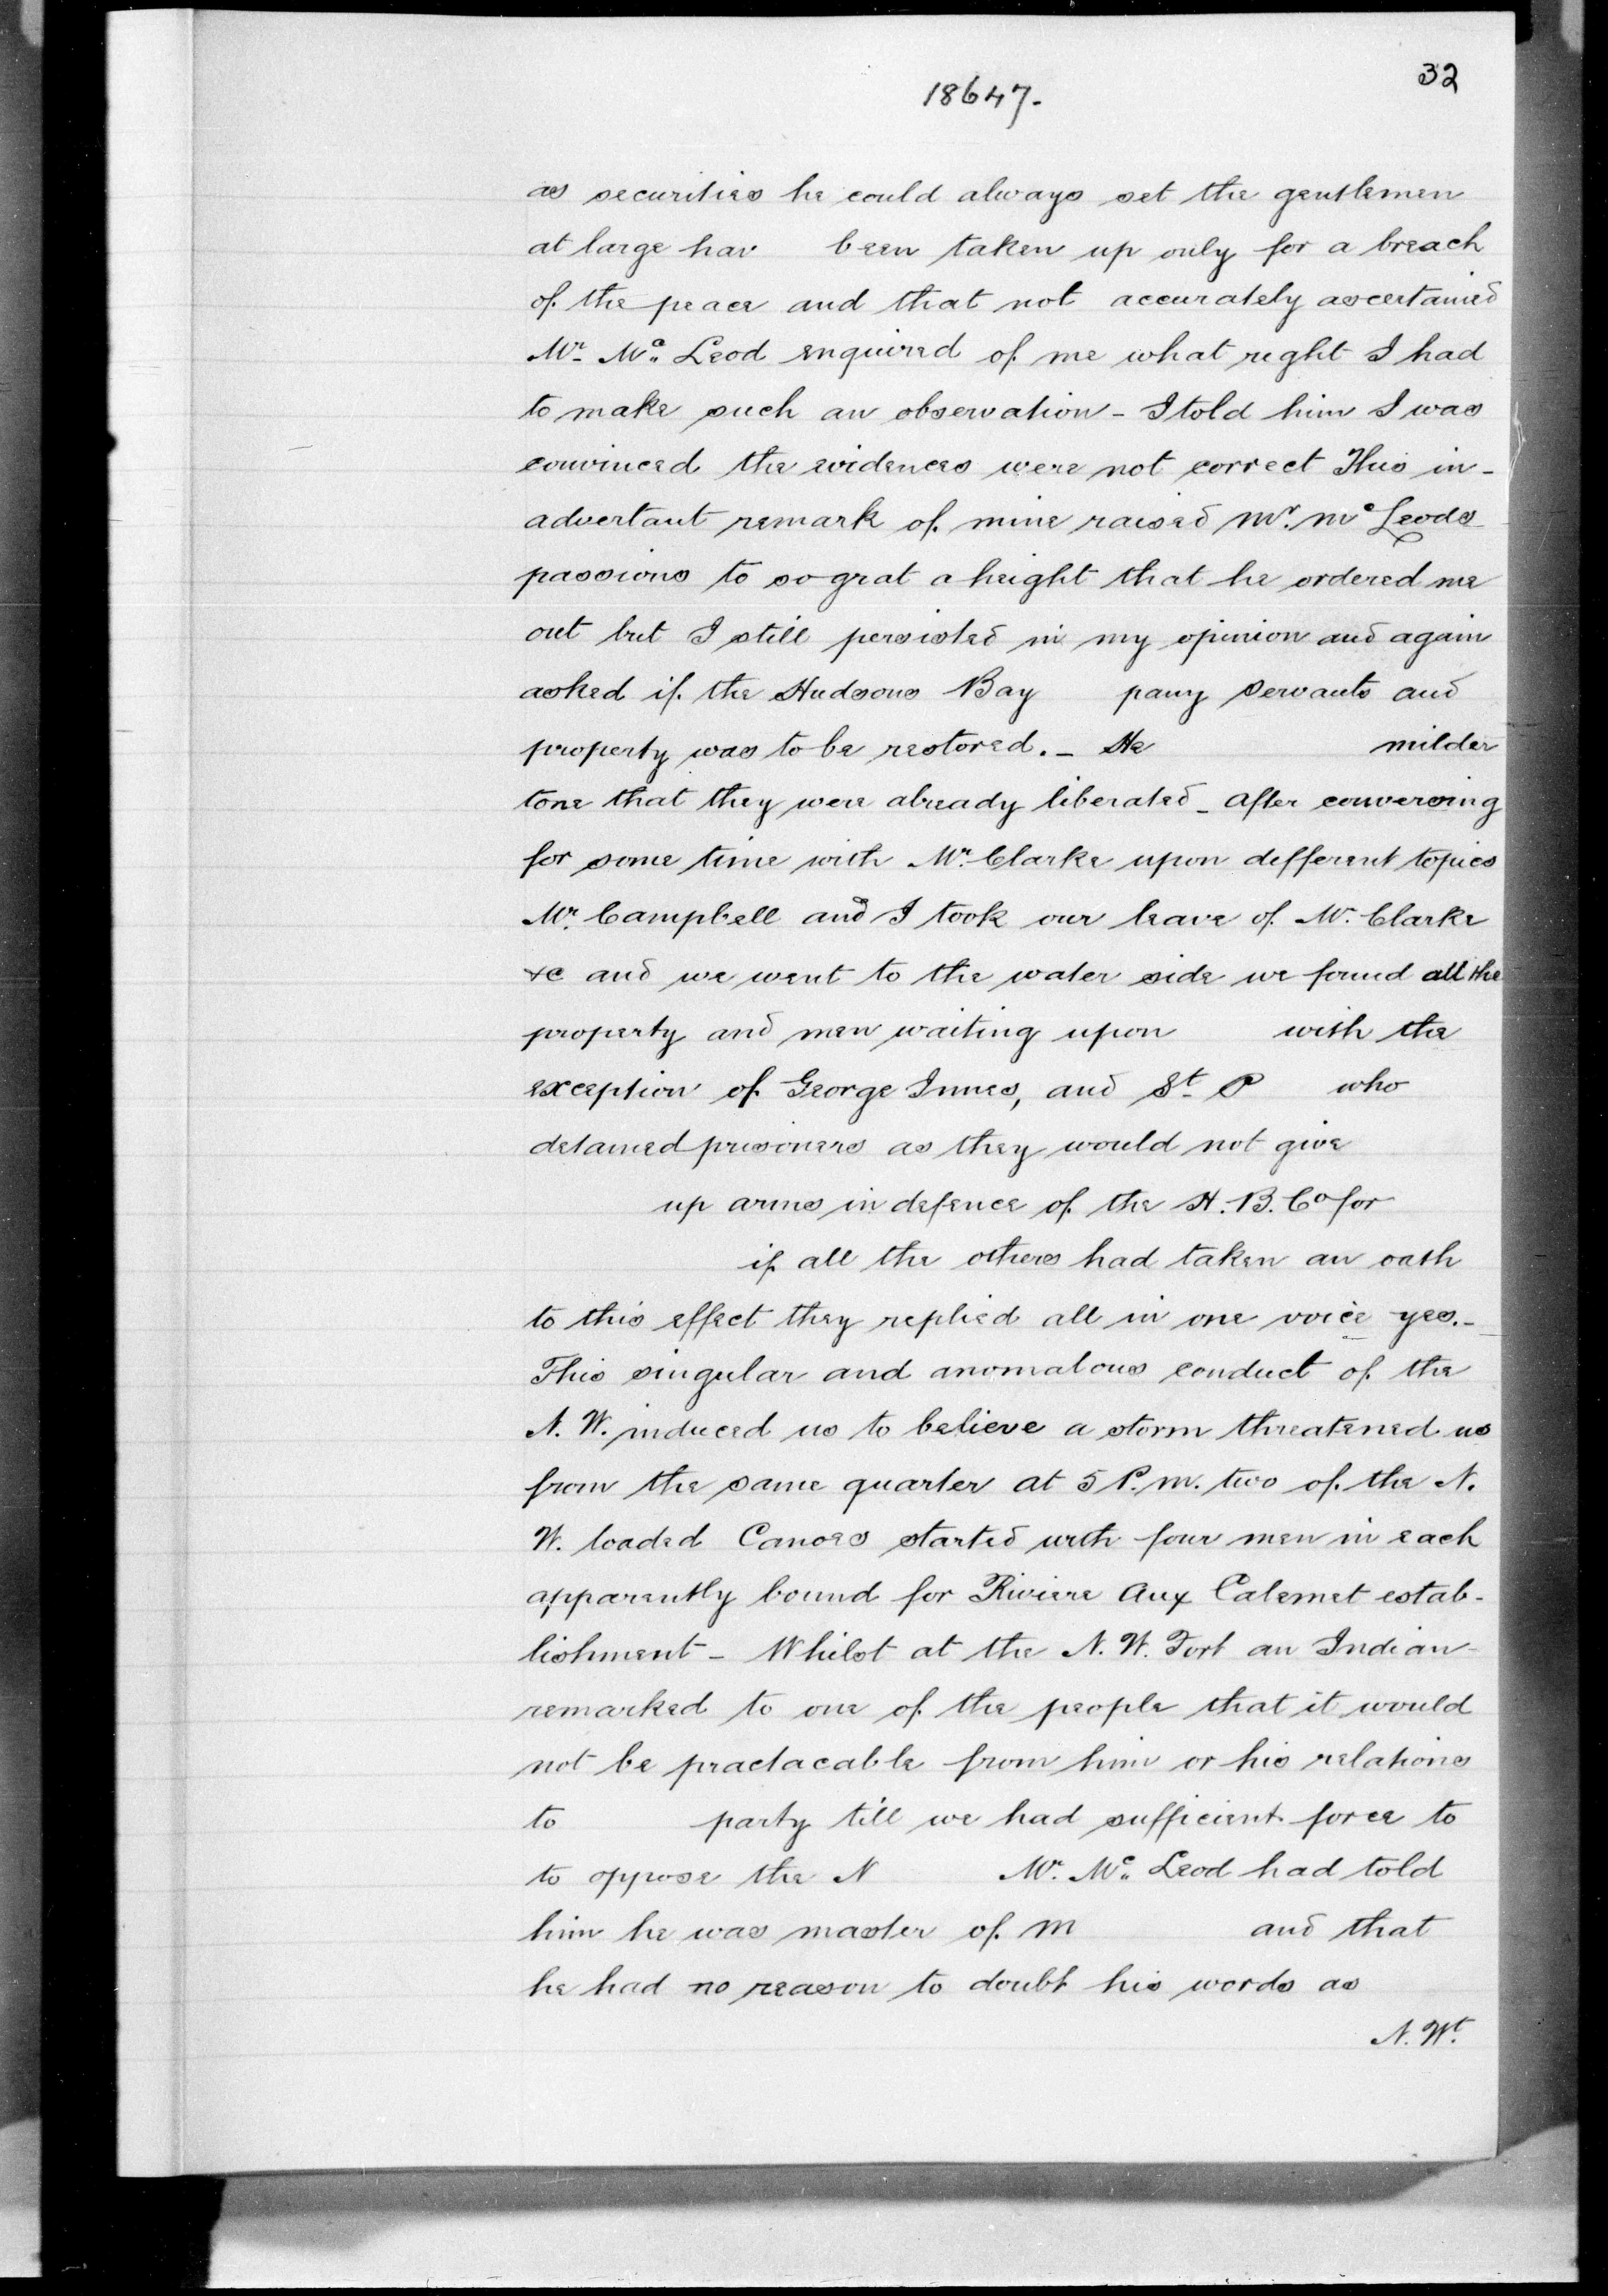 32
18647.
as securities he could always set the gentlemen
at large hav been taken up only for a breach
of the peace and that not accurately ascertained
Mr. Mc. Leod enquired of me what right I had
to make such an observation - I told him I was
convinced the evidences were not correct This in-
advertant remark of mine raised Mr. Mc Leods
passions to so grat a height that he ordered me
out but I still persisted in my opinion and again
asked if the Hudsons Bay pany Servants and
property was to be restored. - He milder
tone that they were already liberated - after conversing
for some time with Mr. Clarke upon defferent topics
Mr. Campbell and I took our leave of Mr. Clarke
&c and we went to the water side we found all the
property and men waiting upon with the
exception of George Innes, and St. P who
detained prisoners as they would not give
up arms in defence of the H. B. Co for
if all the others had taken an oath
to this effect they replied all in one voice yes. -
This singular and anomalous conduct of the
N. W. induced us to believe a storm threatened us
from the same quarter at 5 P.m. two of the N.
W. loaded Canoes started with four men in each
apparently bound for Riviere Aux Calemet estab-
lishment - Whilst at the N. W. Fort an Indian
remarked to one of the people that it would
not be practacable from him or his relations
to party till we had sufficient force to
to oppose the N Mr. Mc. Leod had told
him he was master of M and that
he had no reason to doubt his words as
N. Wt.